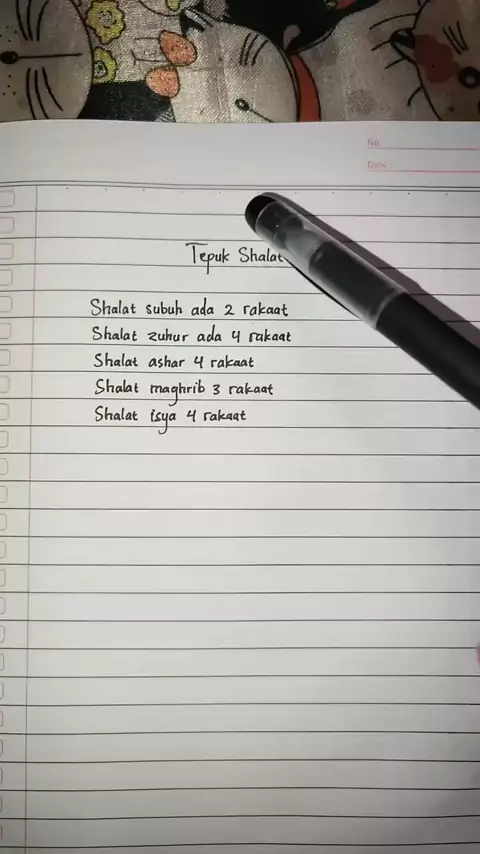 No
Date :
Tepuk Shalat
Shalat subuh ada 2 rakaat
Shalat zuhur ada 4 rakaat
Shalat ashar 4 rakaat
Shalat maghrib 3 rakaat
Shalat isya 4 rakaat